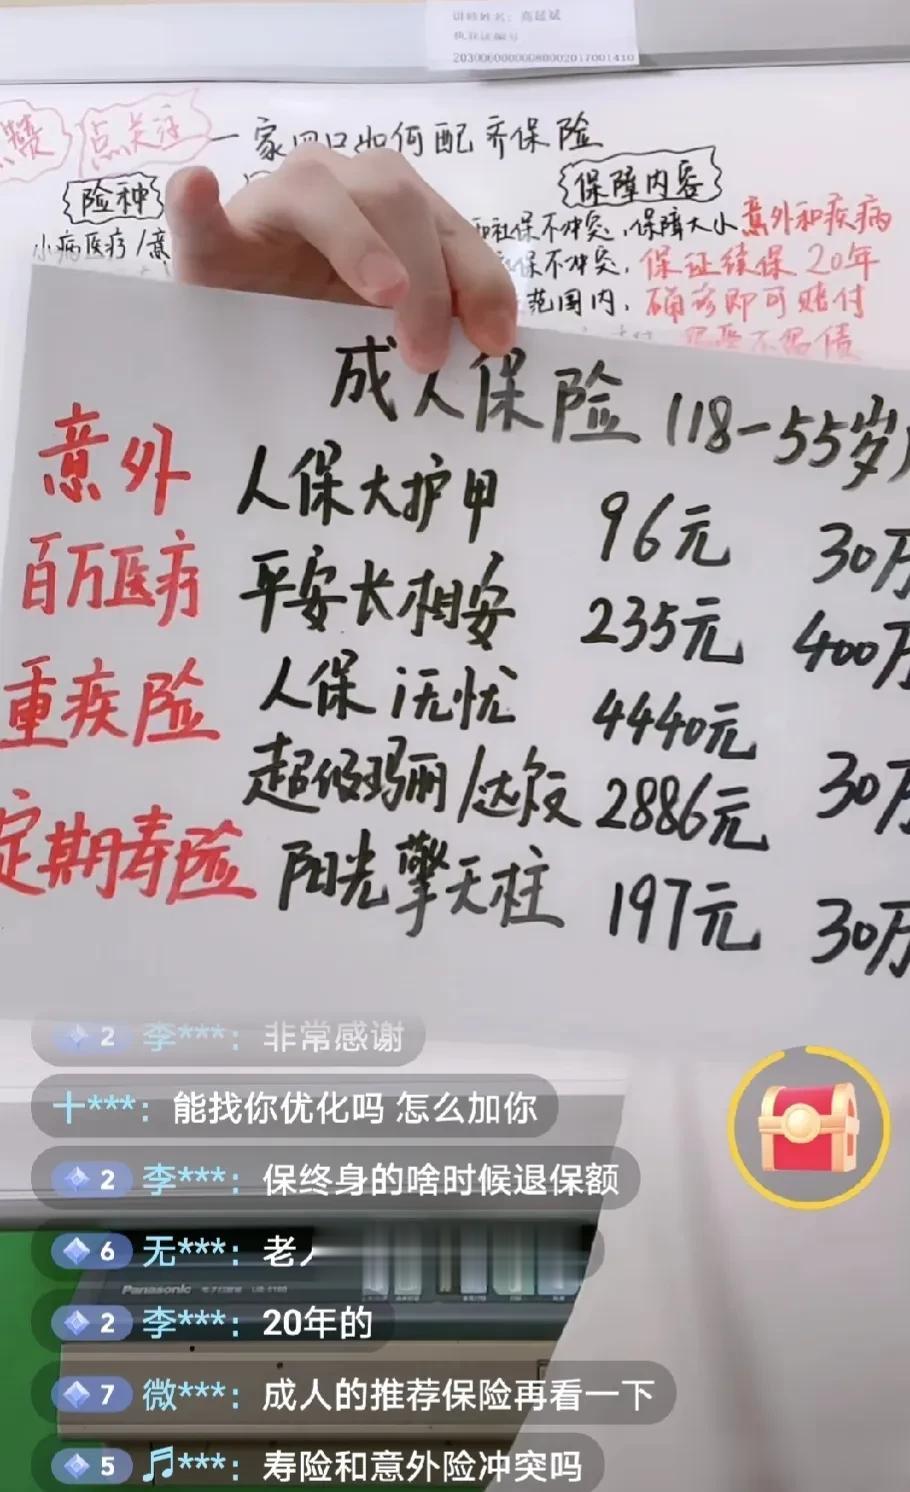 讲师姓名：高延斌
执业证编号
20300600000080002017001410
点关注
一家四口如何配齐保险
险种
保障内容
小病医疗/意
和社保不冲突，保障大小意外和疾病
保不冲突，保证续保20年
范围内，确诊即可赔付
成人保险 (18-55岁)
意外 人保大护甲 96元 30万
百万医疗 平安长相安 235元 400万
重疾险 人保i无忧 4440元
超级玛丽/达尔文 2886元 30万
定期寿险 阳光擎天柱 197元 30万
2 李***：非常感谢
十***：能找你优化吗 怎么加你
2 李***：保终身的啥时候退保额
6 无***：老人
Panasonic
2 李***：20年的
7 微***：成人的推荐保险再看一下
5 ***：寿险和意外险冲突吗